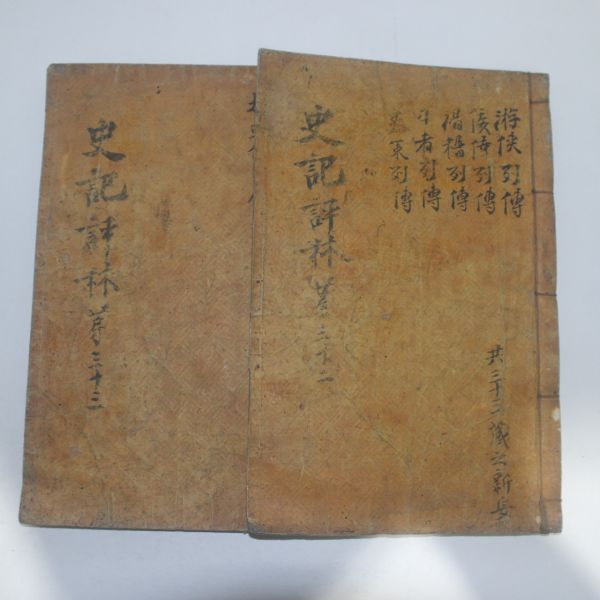 史記評林 第三十三
史記評林 第三十二
游俠列傳
佞倖列傳
滑稽列傳
日者列傳
龜策列傳
共三十三